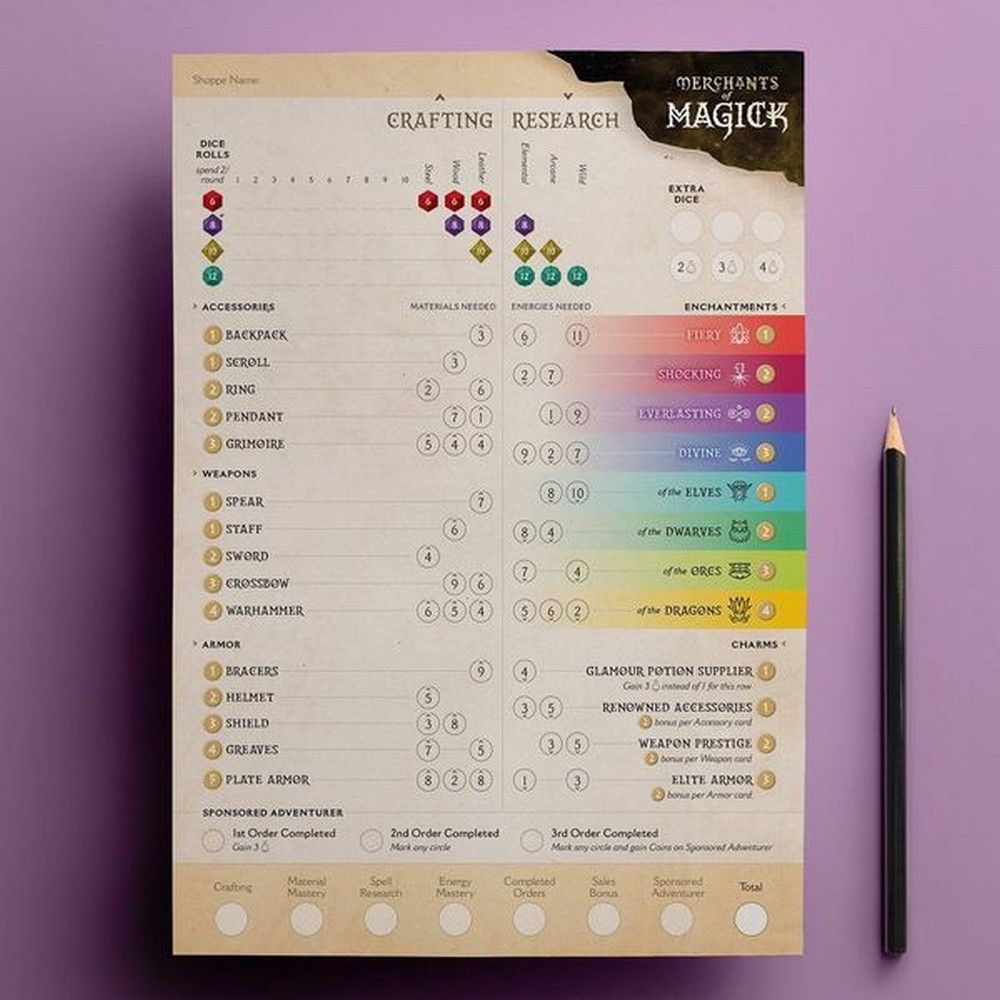 Shoppe Name:
MERCHANTS
of
MAGICK
CRAFTING RESEARCH
DICE
ROLLS
spend 2/
round 1 2 3 4 5 6 7 8 9 10
Steel Wood Leather Elemental Arcane Wild
EXTRA
DICE
6 6 6 6
8 8 8 8
10 10 10 10
12 12 12 12
2 3 4
ACCESSORIES MATERIALS NEEDED ENERGIES NEEDED ENCHANTMENTS
1 BACKPACK 3
1 SCROLL 3
2 RING 2 6
2 PENDANT 7 1
3 GRIMOIRE 5 4 4
6 11 FIERY 1
2 7 SHOCKING 2
1 9 EVERLASTING 2
9 2 7 DIVINE 3
WEAPONS
1 SPEAR 7
1 STAFF 6
2 SWORD 4
3 CROSSBOW 9 6
4 WARHAMMER 6 5 4
8 10 of the ELVES 1
8 4 of the DWARVES 2
7 4 of the ORCS 3
5 6 2 of the DRAGONS 4
ARMOR
1 BRACERS 9
2 HELMET 5
3 SHIELD 3 8
4 GREAVES 7 5
5 PLATE ARMOR 8 2 8
CHARMS
4 GLAMOUR POTION SUPPLIER 1
Gain 3 instead of 1 for this row
3 5 RENOWNED ACCESSORIES 1
2 bonus per Accessory card
3 5 WEAPON PRESTIGE 2
2 bonus per Weapon card
1 3 ELITE ARMOR 3
2 bonus per Armor card
SPONSORED ADVENTURER
1st Order Completed
Gain 3
2nd Order Completed
Mark any circle
3rd Order Completed
Mark any circle and gain Coins on Sponsored Adventurer
Crafting
Material
Mastery
Spell
Research
Energy
Mastery
Completed
Orders
Sales
Bonus
Sponsored
Adventurer
Total